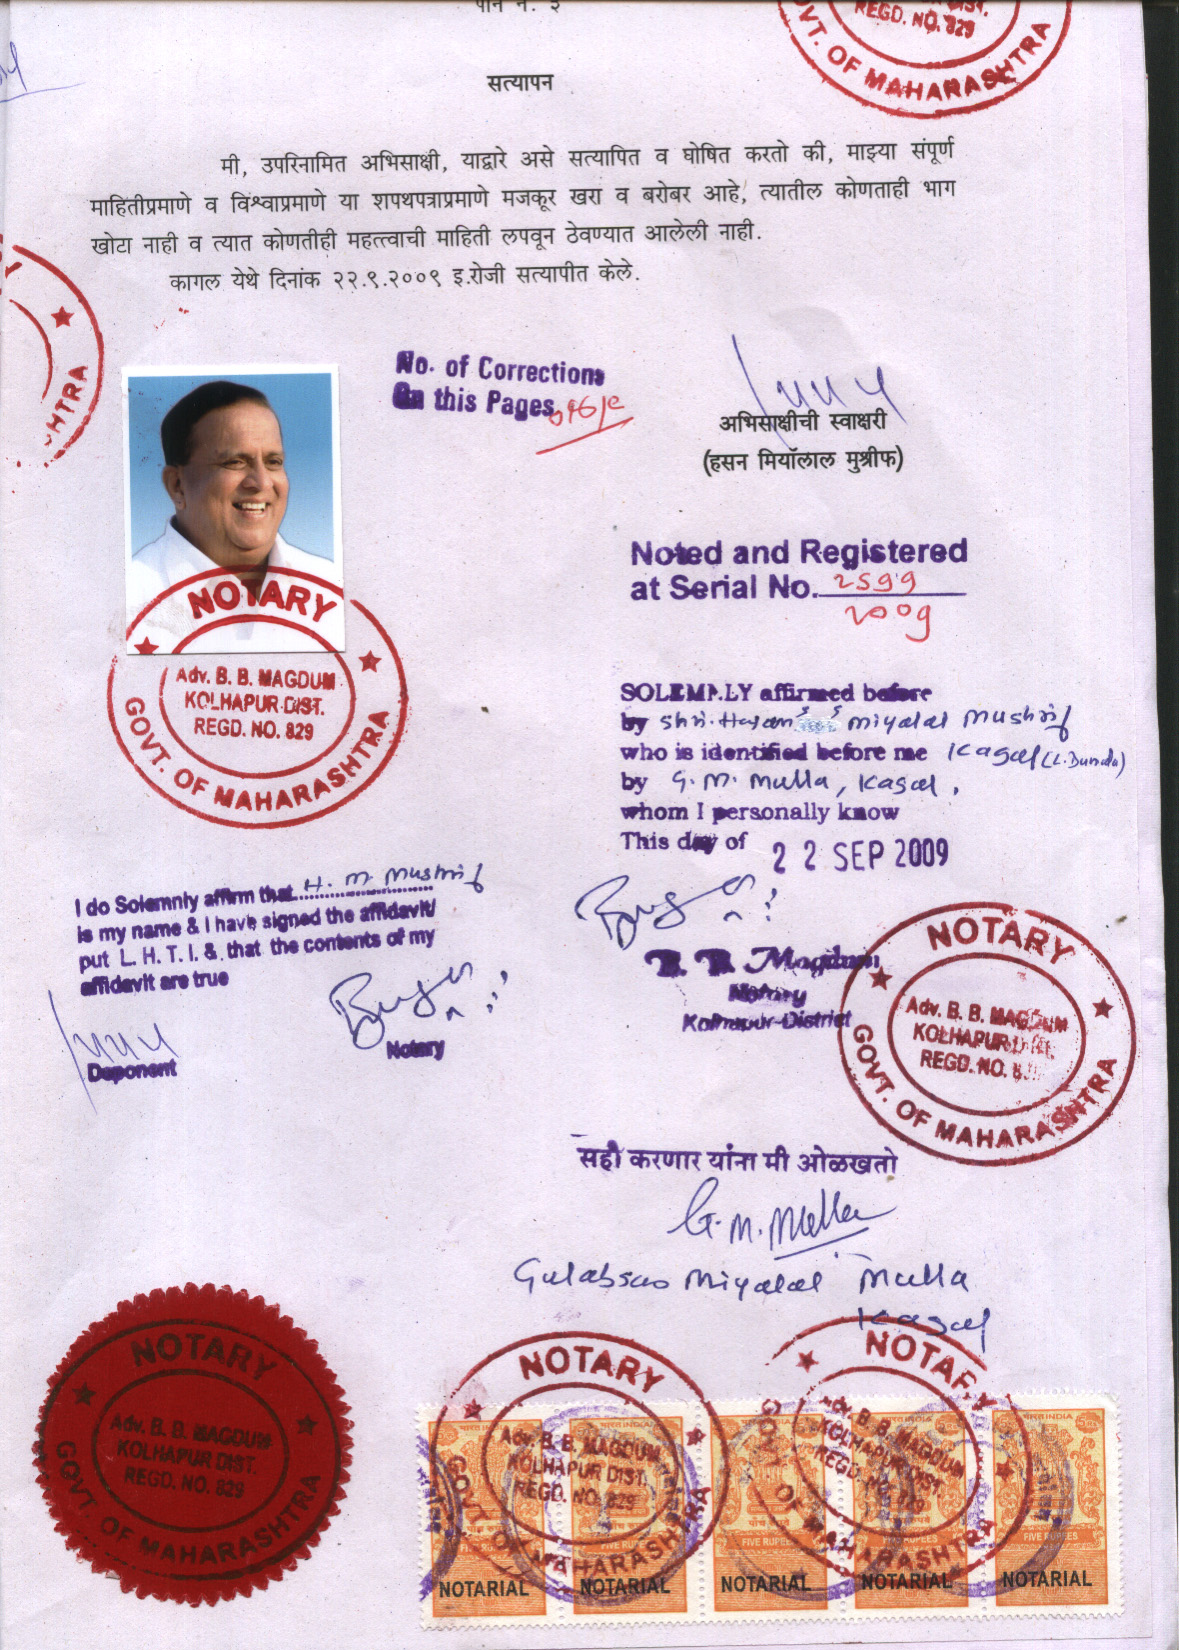 पान नं. ३
REGD. NO. 829
GOVT. OF MAHARASHTRA
सत्यापन
मी, उपरिनामित अभिसाक्षी, याद्वारे असे सत्यापित व घोषित करतो की, माझ्या संपूर्ण
माहितीप्रमाणे व विश्वाप्रमाणे या शपथपत्राप्रमाणे मजकूर खरा व बरोबर आहे, त्यातील कोणताही भाग
खोटा नाही व त्यात कोणतीही महत्त्वाची माहिती लपवून ठेवण्यात आलेली नाही.
कागल येथे दिनांक २२.९.२००९ इ.रोजी सत्यापीत केले.
No. of Corrections
On this Pages
अभिसाक्षीची स्वाक्षरी
(हसन मियॉलाल मुश्रीफ)
Noted and Registered
at Serial No. 2599
2009
NOTARY
Adv. B. B. MAGDUM
KOLHAPUR DIST.
REGD. NO. 829
GOVT. OF MAHARASHTRA
SOLEMNLY affirmed before
by Shri. Hasan Miyalal Mushrif
who is identified before me Kagal
by G. M. Mulla, Kagal,
whom I personally know
This day of 22 SEP 2009
I do Solemnly affirm that H. M. Mushrif
is my name & I have signed the affidavit/
put L. H. T. I. & that the contents of my
affidavit are true
Deponent
Notary
B. B. Magdum
Notary
Kolhapur-District
NOTARY
Adv. B. B. MAGDUM
KOLHAPUR DIST.
REGD. NO. 8
GOVT. OF MAHARASHTRA
सही करणार यांना मी ओळखतो
G. M. Mulla
Gulabsao Miyalal Mulla
Kagal
NOTARY
Adv. B. B. MAGDUM
KOLHAPUR DIST.
REGD. NO. 829
GOVT. OF MAHARASHTRA
NOTARY
Adv. B. B. MAGDUM
KOLHAPUR DIST.
REGD. NO. 829
GOVT. OF MAHARASHTRA
NOTARY
Adv. B. B. MAGDUM
KOLHAPUR DIST.
REGD. NO. 829
भारत INDIA
FIVE RUPEES
NOTARIAL NOTARIAL NOTARIAL NOTARIAL NOTARIAL